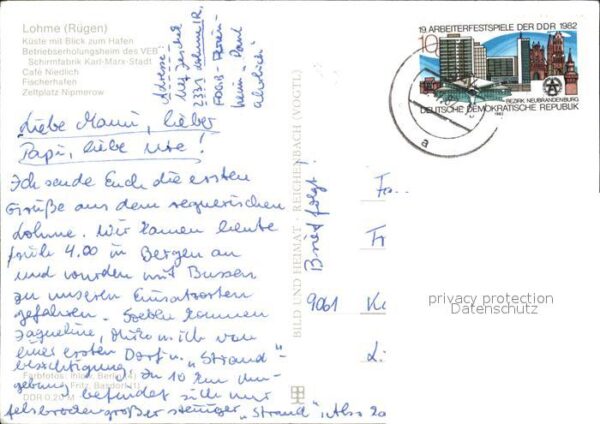 Lohme (Rügen)
Küste mit Blick zum Hafen
Betriebserholungsheim des VEB
Schirmfabrik Karl-Marx-Stadt
Café Niedlich
Fischerhafen
Zeltplatz Nipmerow
Adresse:
2331 Lohme /R.
FDGB-Ferien-
heim "Paul
Liebe Mami, lieber
Papi, liebe Ute!
Ich sende Euch die ersten
Grüße aus dem regnerischen
Lohme. Wir kamen heute
früh 4.00 in Bergen an
und wurden mit Bussen
zu unseren Einsatzorten
gefahren. Soeben kommen
Jaqueline, u. ich von
einer ersten Dorf u. "Strand"-
besichtigung. In 10 km Um-
gebung befindet sich nur
felsbrockengroßer steiniger "Strand". Also
Farbfotos: Berlin (4)
Fritz, Bansdorf (1)
DDR 0,20 M
BILD UND HEIMAT · REICHENBACH (VOGTL)
Brief folgt!
19. ARBEITERFESTSPIELE DER DDR 1982
10
BEZIRK NEUBRANDENBURG
DEUTSCHE DEMOKRATISCHE REPUBLIK
1982
a
Fr
9061
privacy protection
Datenschutz